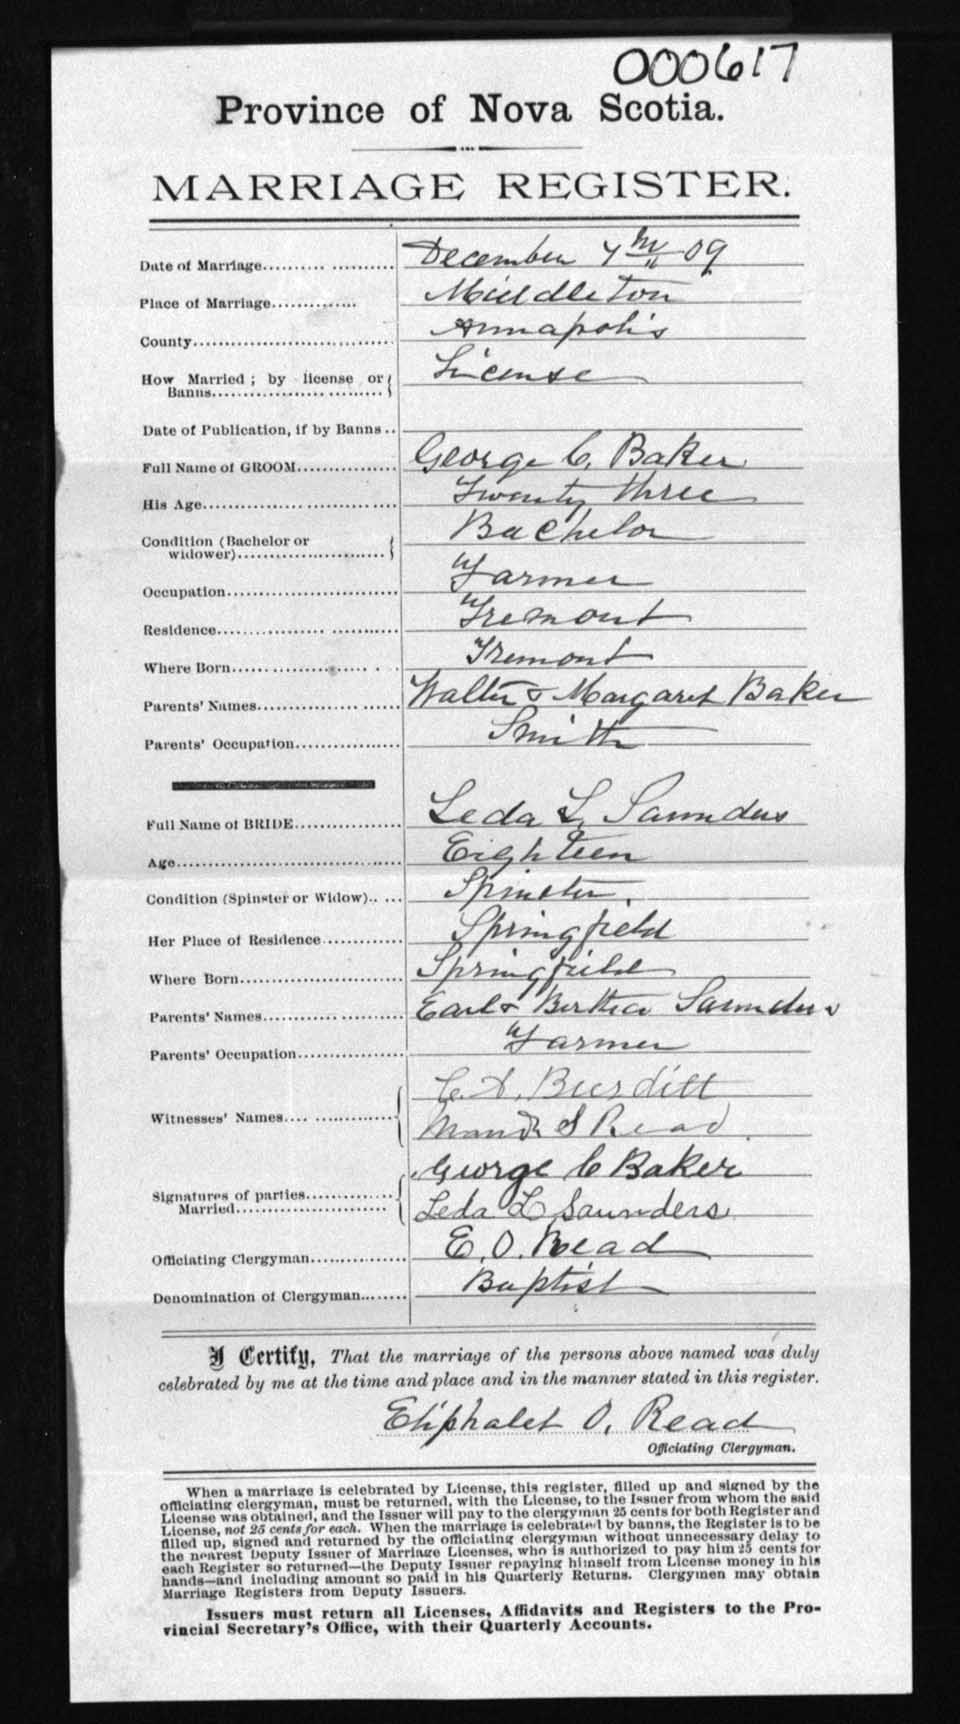 000617
Province of Nova Scotia.
MARRIAGE REGISTER.
Date of Marriage December 7th 09
Place of Marriage Middleton
County Annapolis
How Married ; by license or License
Banns
Date of Publication, if by Banns
Full Name of GROOM George C. Baker
His Age Twenty three
Condition (Bachelor or Bachelor
widower)
Occupation Farmer
Residence Tremont
Where Born Tremont
Parents' Names Walter & Margaret Baker
Parents' Occupation Smith
Full Name of BRIDE Leda L. Saunders
Age Eighteen
Condition (Spinster or Widow) Spinster.
Her Place of Residence Springfield
Where Born Springfield
Parents' Names Earl & Bertha Saunders
Parents' Occupation Farmer
Witnesses' Names Burditt
S Read.
Signatures of parties George C Baker
Married Leda L Saunders
Officiating Clergyman E. O. Read
Denomination of Clergyman Baptist
I Certify, That the marriage of the persons above named was duly
celebrated by me at the time and place and in the manner stated in this register.
Eliphalet O. Read
Officiating Clergyman.
When a marriage is celebrated by License, this register, filled up and signed by the
officiating clergyman, must be returned, with the License, to the Issuer from whom the said
License was obtained, and the Issuer will pay to the clergyman 25 cents for both Register and
License, not 25 cents for each. When the marriage is celebrated by banns, the Register is to be
filled up, signed and returned by the officiating clergyman without unnecessary delay to
the nearest Deputy Issuer of Marriage Licenses, who is authorized to pay him 25 cents for
each Register so returned—the Deputy Issuer repaying himself from License money in his
hands—and including amount so paid in his Quarterly Returns. Clergymen may obtain
Marriage Registers from Deputy Issuers.
Issuers must return all Licenses, Affidavits and Registers to the Pro-
vincial Secretary's Office, with their Quarterly Accounts.